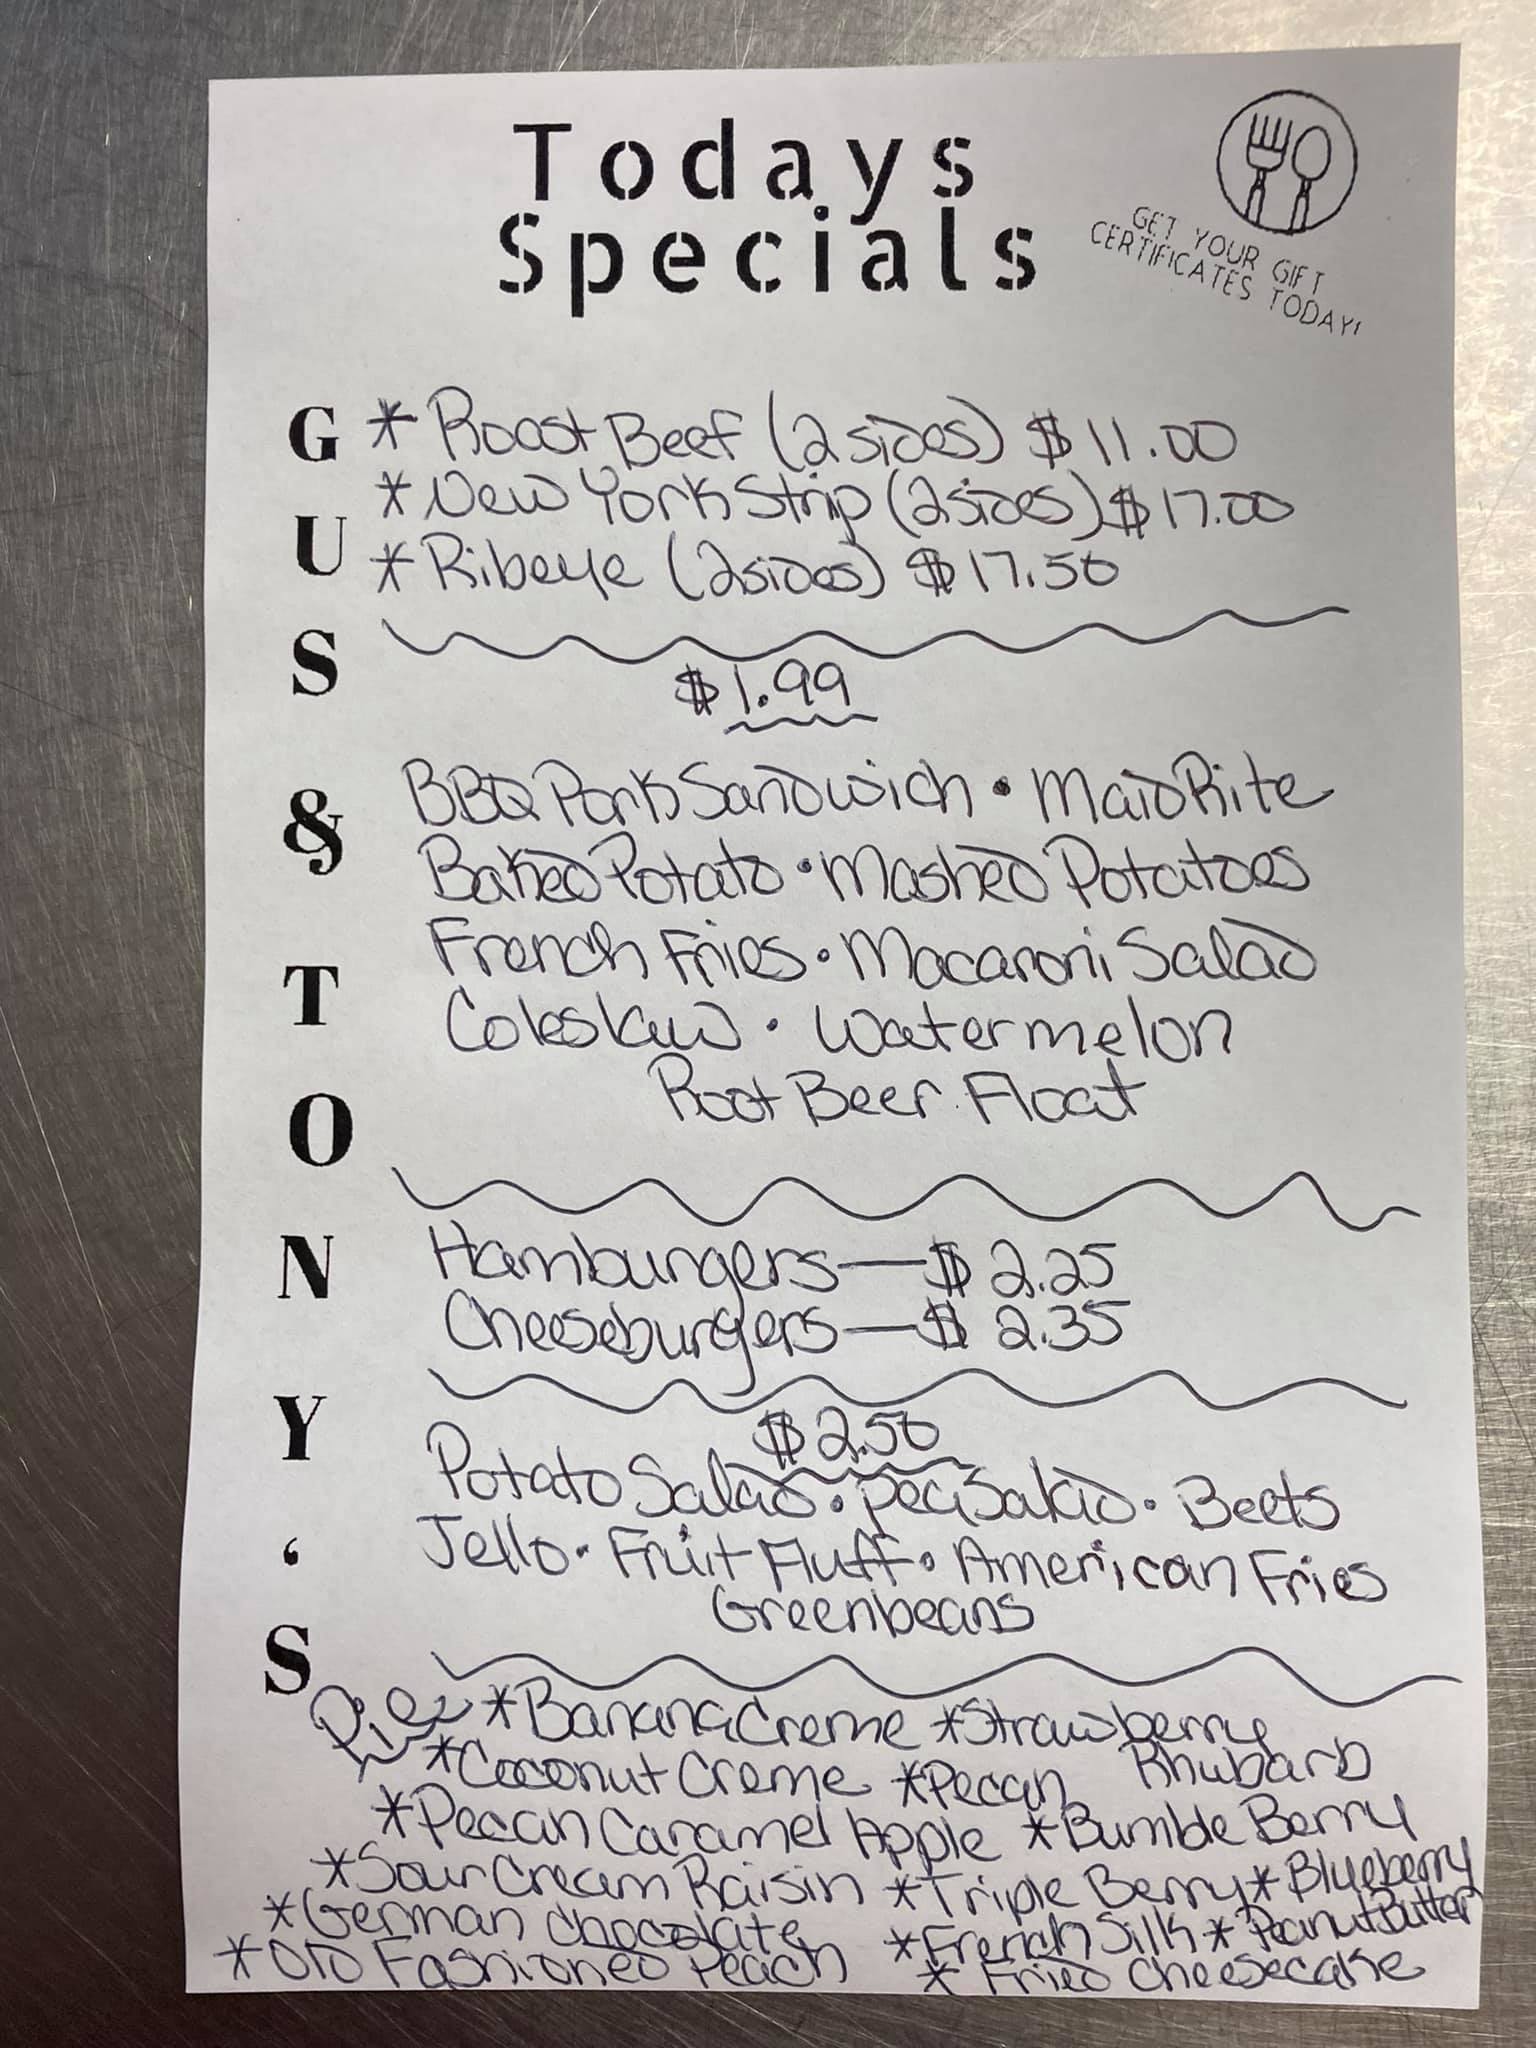 Todays
Specials
GET YOUR GIFT
CERTIFICATES TODAY!
GUS & TONY'S
* Roast Beef (2 sides) $11.00
* New York Strip (2 sides) $17.00
* Ribeye (2 sides) $17.50
$1.99
BBQ Pork Sandwich • MaidRite
Baked Potato • Mashed Potatoes
French Fries • Macaroni Salad
Coleslaw • Watermelon
Root Beer Float
Hamburgers — $2.25
Cheeseburgers — $2.35
$2.50
Potato Salad • Pea Salad • Beets
Jello • Fruit Fluff • American Fries
Greenbeans
Pies *Banana Creme *Strawberry Rhubarb
*Coconut Creme *Pecan
*Pecan Caramel Apple *Bumble Berry
*Sour Cream Raisin *Triple Berry *Blueberry
*German chocolate *French Silk *Peanut Butter
*Old Fashioned Peach * Fried cheesecake